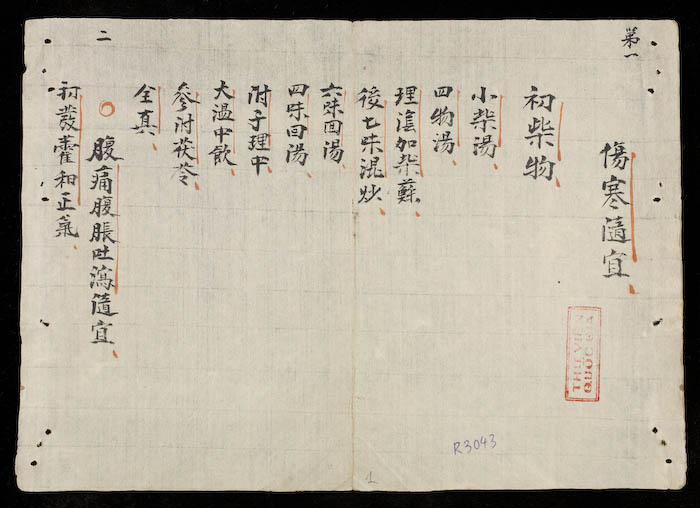 第一
傷寒隨宜
初柴物
小柴湯
四物湯
理陰加柴蘇
後七味混炒
六味回湯
四味回湯
附子理中
大溫中飲
參附茯苓
全真
二
腹痛腹脹吐瀉隨宜
初發藿和正氣
R3043
1